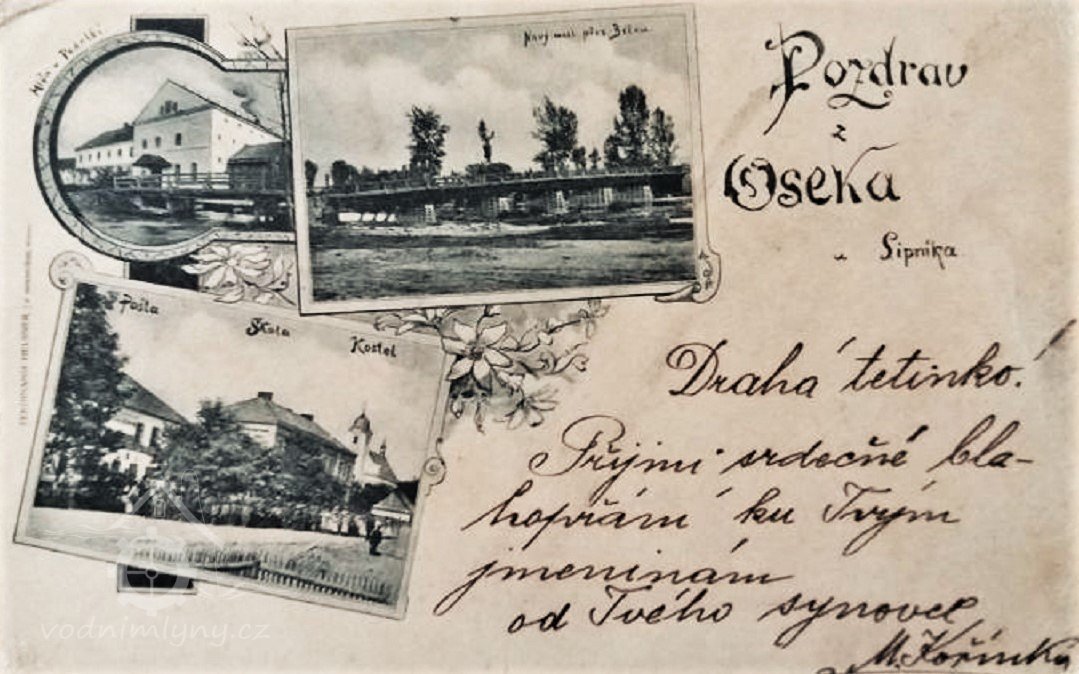 Mlýn v
Nový most přes Bečvu
Pozdrav
z
Oseka
u Lipníka
Pošta
Škola
Kostel
Drahá tetinko!
Přijmi srdečné bla-
hopřání ku Tvým
jmeninám
od Tvého synovce
M. Kořínka
vodnimlyny.cz